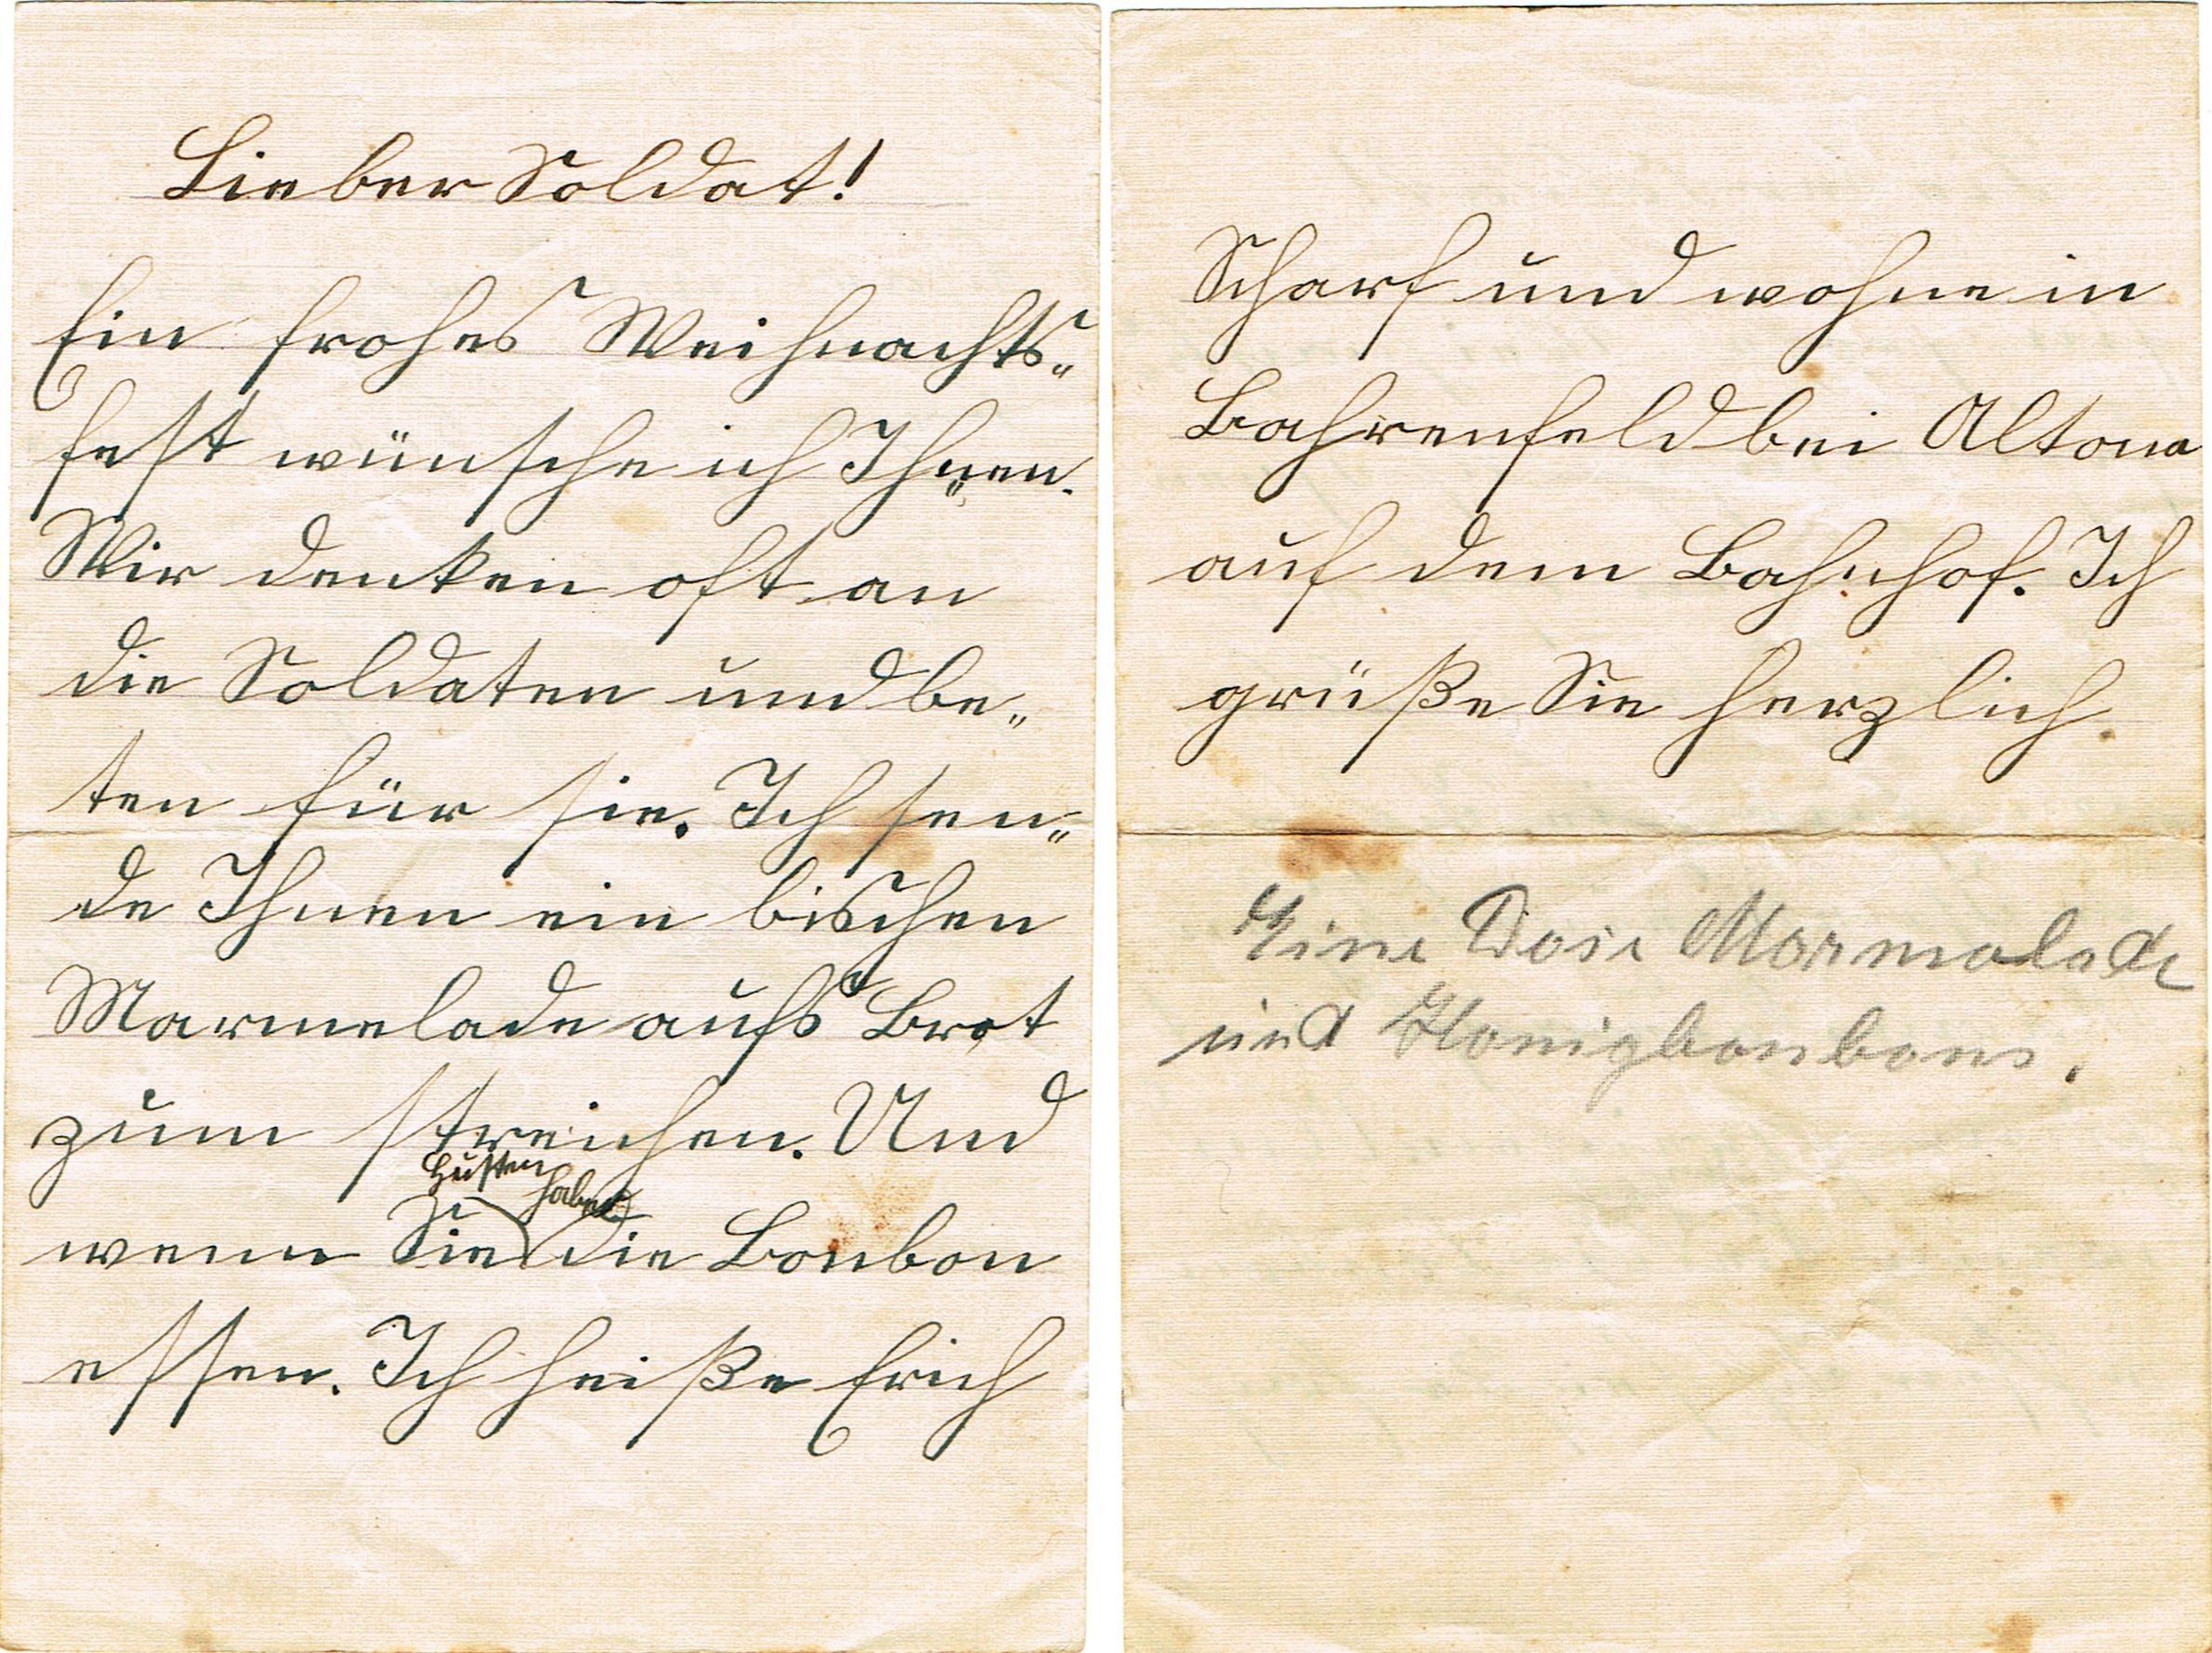 Lieber Soldat!
Ein frohes Weihnachts„
fest wünsche ich Ihnen.
Wir denken oft an
die Soldaten und be„
ten für sie. Ich sen„
de Ihnen ein bischen
Marmelade aufs Brot
zum streichen. Und
Husten haben
wenn Sie die Bonbon
essen. Ich heiße Erich
Scharf und wohne in
Bahrenfeld bei Altona
auf dem Bahnhof. Ich
grüße Sie herzlich.
Eine Dose Marmelade
und Honigbonbons.